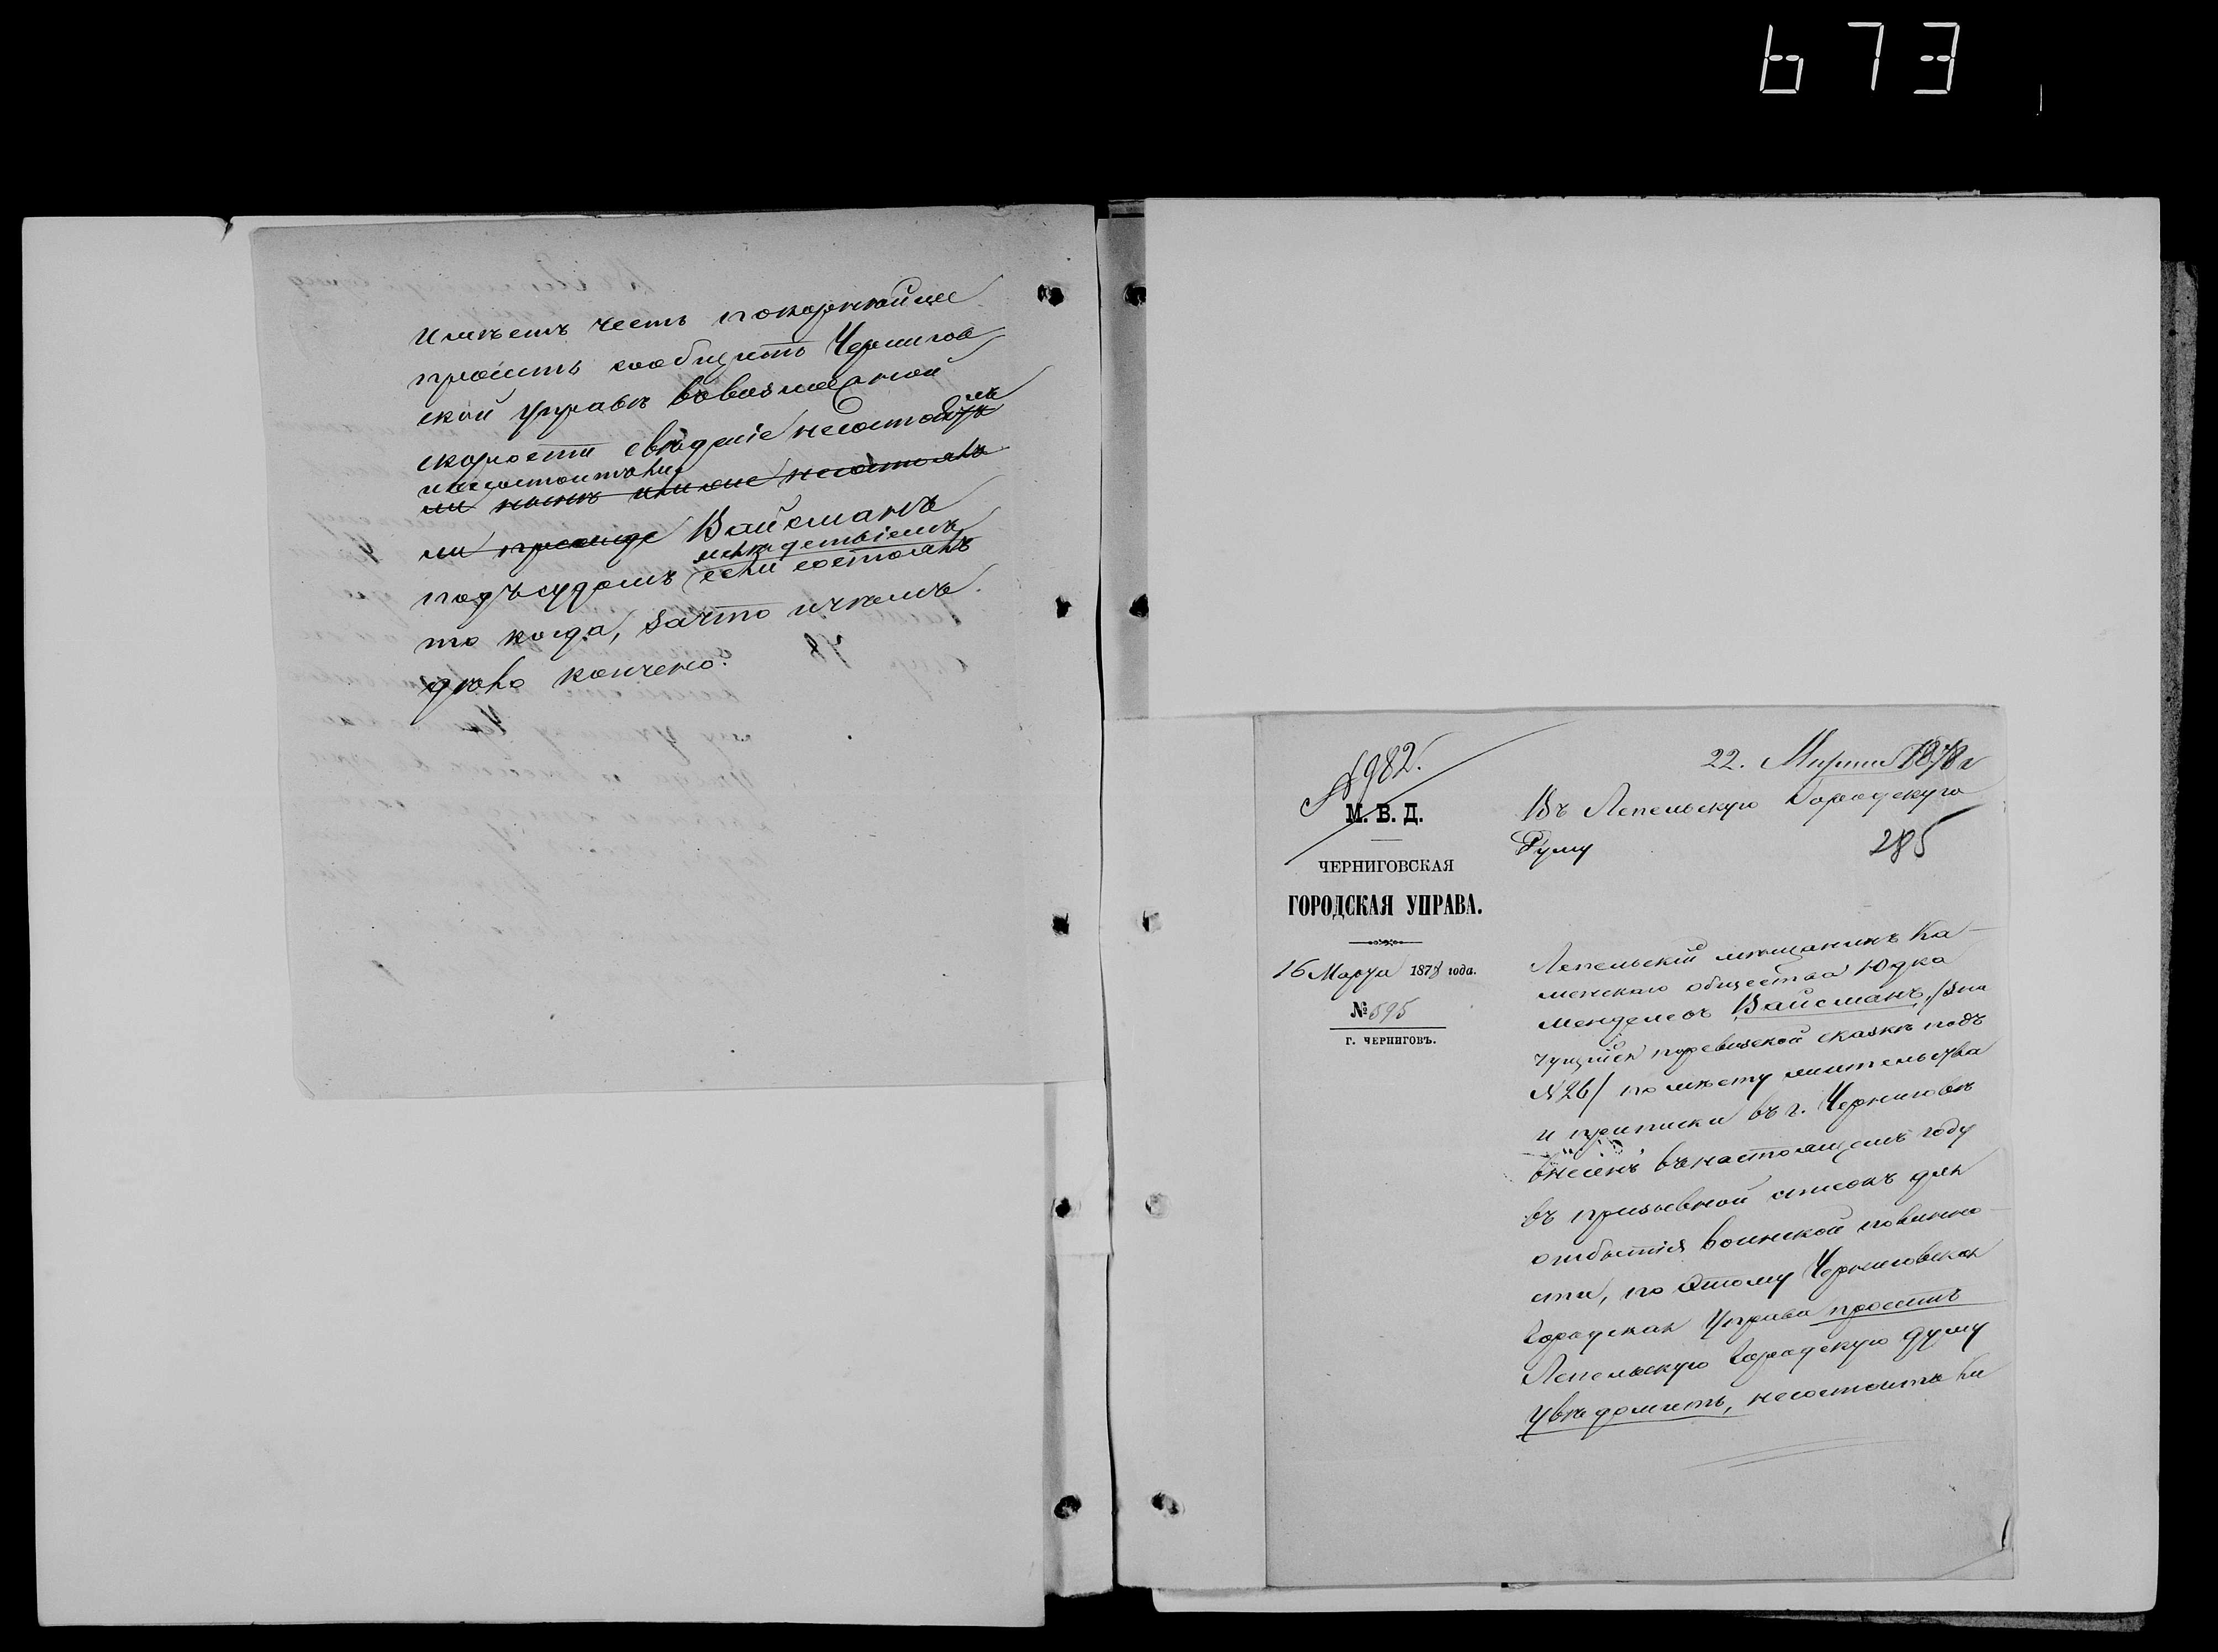 673
имѣетъ честь покорнѣйше
просить сообщить Чернигов
ской Управѣ въ возможной
скорости свѣденіе несостоитъ
ли
и несостоялъ ли
ли нынѣ или же несостоялъ
ли прежде Вайсманъ
подъ судомъ если состоялъ
то когда, за что и чѣмъ
дѣло кончено.
№ 982.
М. В. Д.
ЧЕРНИГОВСКАЯ
ГОРОДСКАЯ УПРАВА.
16 Марта 1878 года.
№ 595
г. ЧЕРНИГОВЪ.
22. Марта 1878 г
Въ Лепельскую Городскую
Думу
285
Лепельскій мѣщанинъ Ка
менскаго общества Юдка
Менделевъ Вайсманъ, /зна
чущійся по ревизской сказкѣ подъ
№ 26/ по мѣсту жительства
и приписки въ г. Черниговѣ
внесенъ въ настоящемъ году
въ призывной списокъ для
отбытія воинской повинно
сти, по этому Черниговская
Городская Управа проситъ
Лепельскую Городскую Думу
увѣдомить, несостоитъ ли